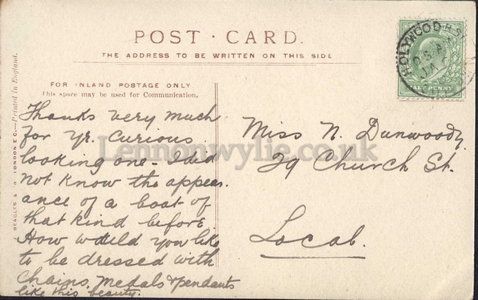 POST CARD.
THE ADDRESS TO BE WRITTEN ON THIS SIDE
FOR INLAND POSTAGE ONLY
This space may be used for Communication.
Thanks very much
for Yr. Curious
looking one - I did
not know the appear
ance of a boat of
that kind before.
How would you like
to be dressed with
Chains, medals & pendants
like this beauty.
Miss N. Dunwoody
29 Church St.
Local.
HOLYWOOD
Lennonwylie.co.uk
Printed in England.